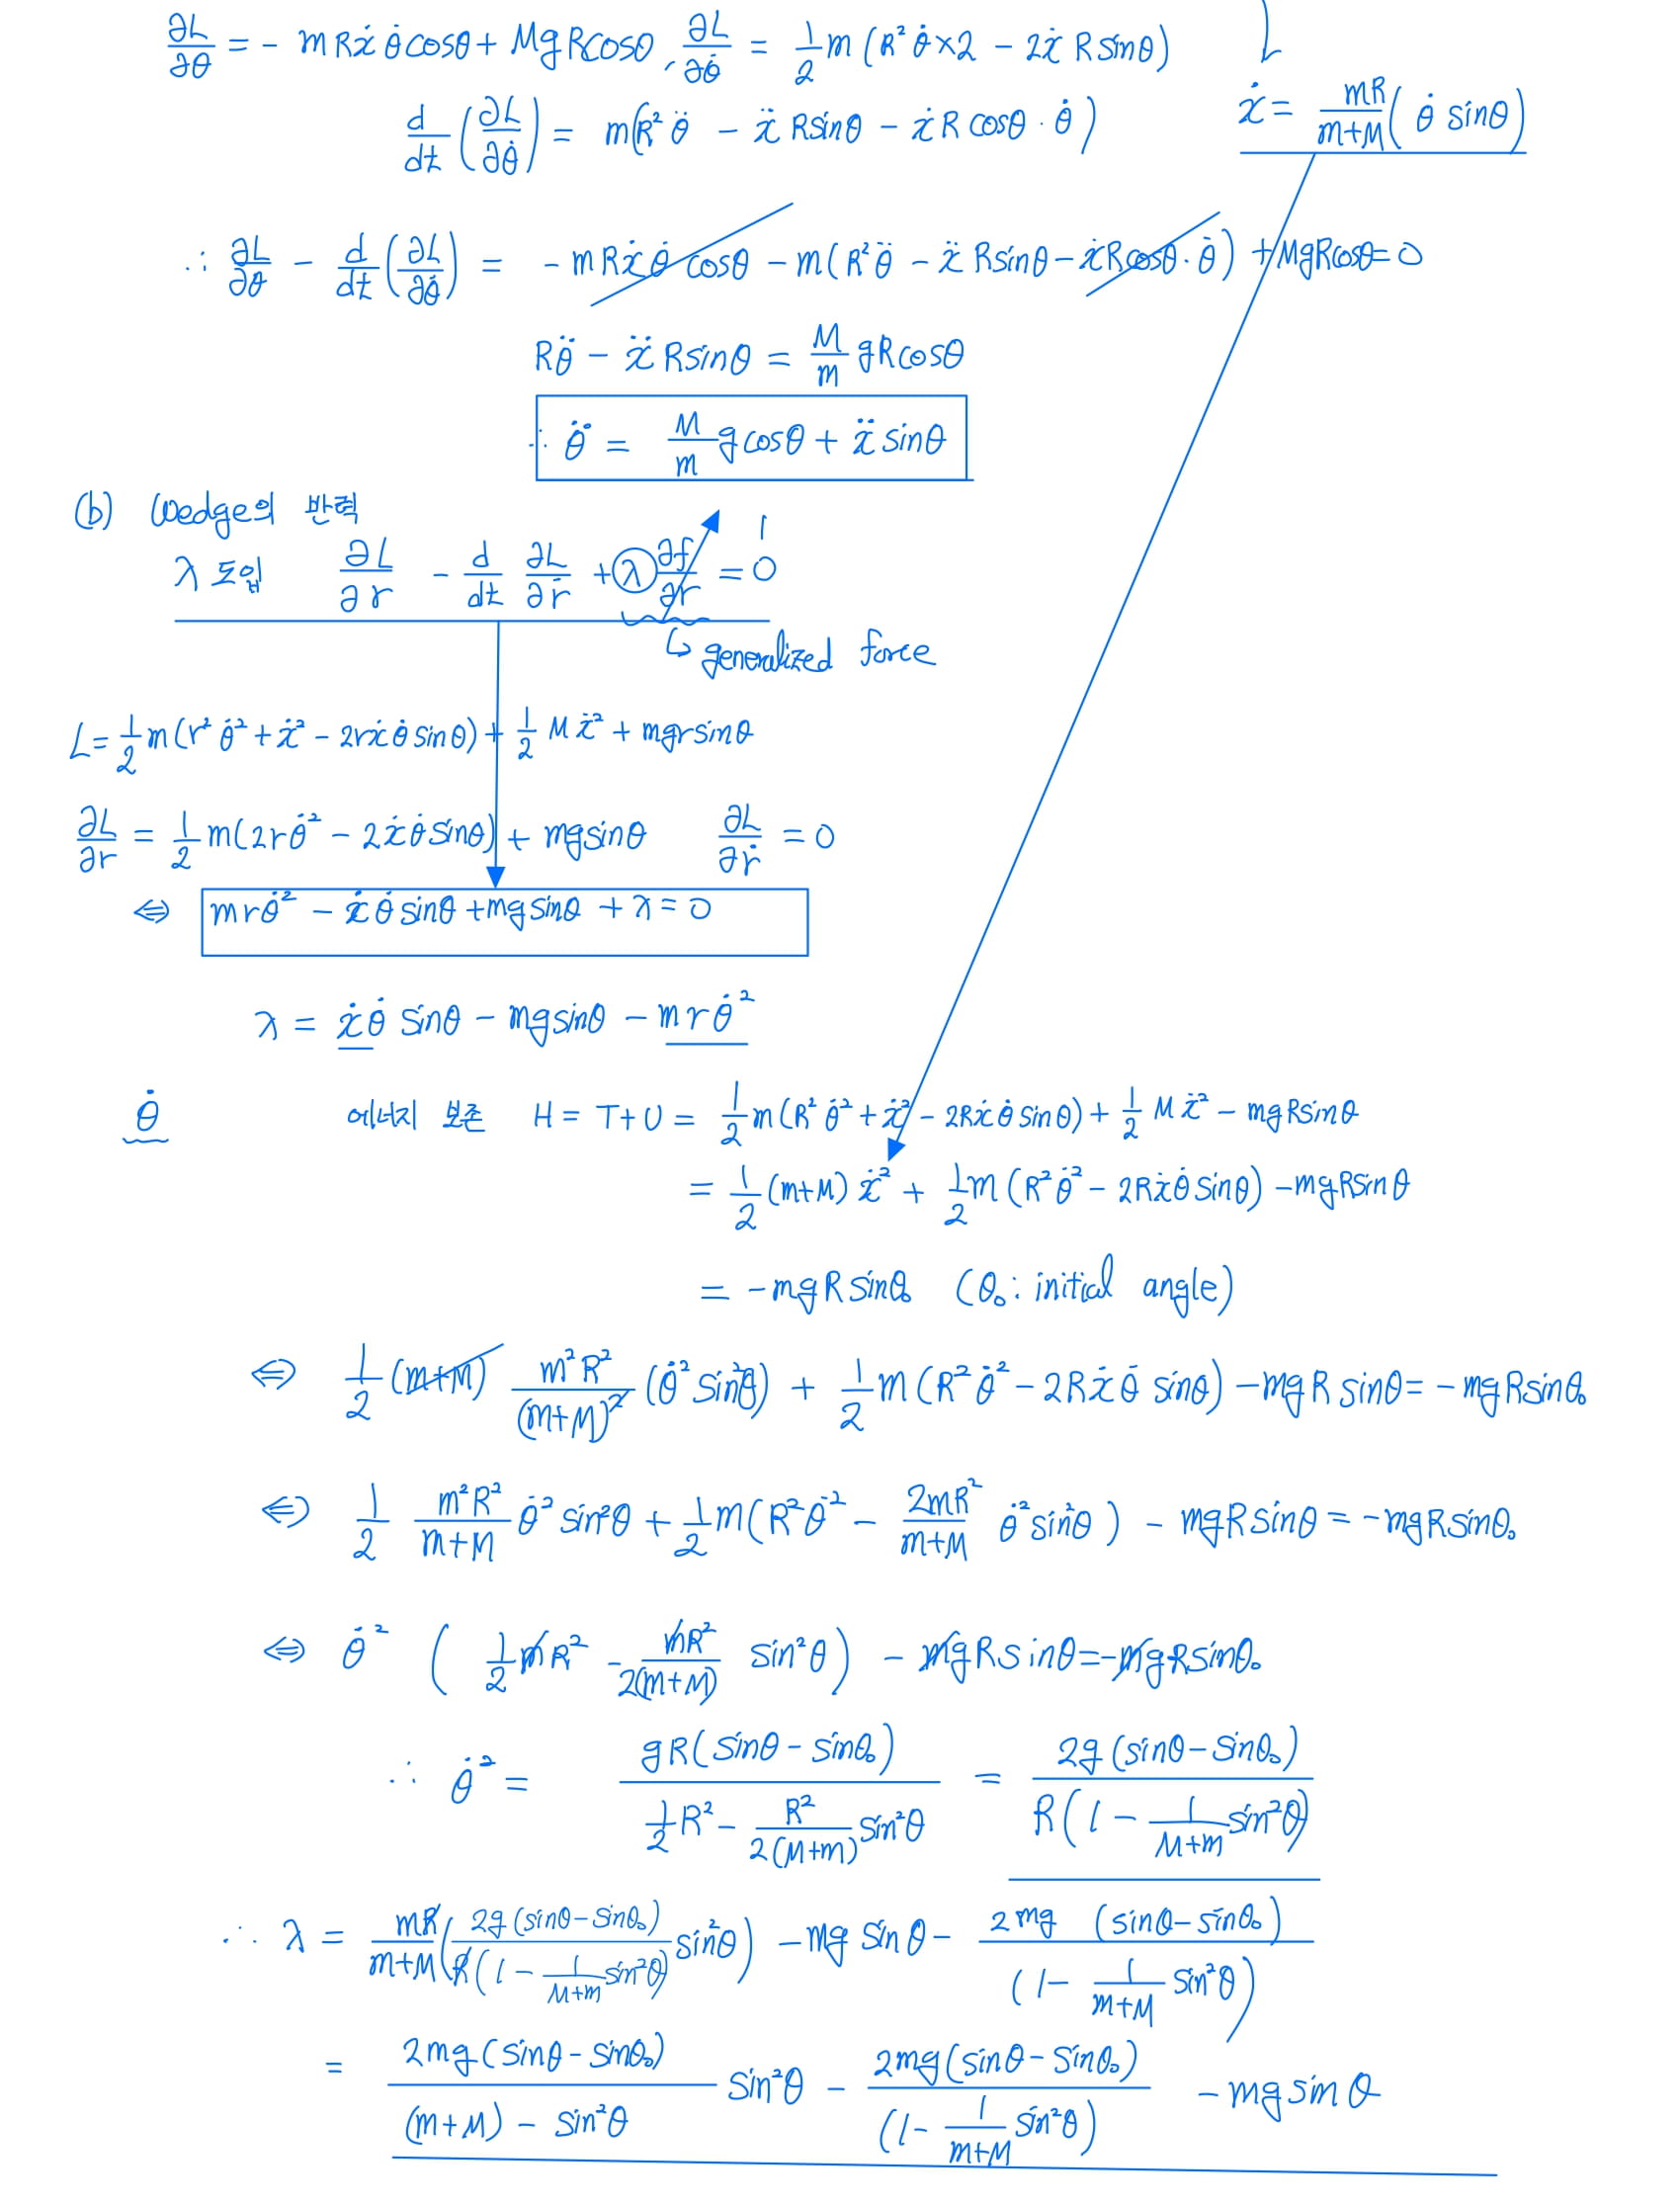 ∂L/∂θ = - mRẋθ̇cosθ + MgRcosθ, ∂L/∂θ̇ = 1/2 m (R²θ̇×2 - 2ẋ R sinθ)
ẋ = mR/(m+M) (θ̇ sinθ)
d/dt (∂L/∂θ̇) = m(R²θ̈ - ẍ Rsinθ - ẋR cosθ · θ̇)
∴ ∂L/∂θ - d/dt (∂L/∂θ̇) = - mRẋθ̇ cosθ - m(R²θ̈ - ẍ Rsinθ - ẋRcosθ · θ̇) + MgRcosθ = 0
Rθ̈ - ẍ Rsinθ = M/m gRcosθ
∴ θ̈ = M/m gcosθ + ẍ sinθ
(b) Wedge의 반력
λ 도입 ∂L/∂r - d/dt ∂L/∂ṙ + λ ∂f/∂r = 0
1
↳ generalized force
L = 1/2 m(r²θ̇² + ẋ² - 2rẋθ̇ sinθ) + 1/2 Mẋ² + mgrsinθ
∂L/∂r = 1/2 m(2rθ̇² - 2ẋθ̇sinθ) + mgsinθ ∂L/∂ṙ = 0
⇔ mrθ̇² - ẋθ̇sinθ + mgsinθ + λ = 0
λ = ẋθ̇ sinθ - mgsinθ - mrθ̇²
θ̇ 에너지 보존 H = T+U = 1/2 m(R²θ̇² + ẋ² - 2Rẋθ̇sinθ) + 1/2 Mẋ² - mgRsinθ
= 1/2 (m+M) ẋ² + 1/2 m (R²θ̇² - 2Rẋθ̇sinθ) - mgRsinθ
= -mgRsinθ₀ (θ₀: initial angle)
⇔ 1/2 (m+M) m²R²/(m+M)² (θ̇²sin²θ) + 1/2 m (R²θ̇² - 2Rẋθ̇ sinθ) - mgR sinθ = -mgRsinθ₀
⇔ 1/2 m²R²/(m+M) θ̇² sin²θ + 1/2 m(R²θ̇² - 2mR²/(m+M) θ̇²sin²θ) - mgR sinθ = -mgRsinθ₀
⇔ θ̇² (1/2 mR² - mR²/2(m+M) sin²θ) - mgRsinθ = -mgRsinθ₀
∴ θ̇² = gR(sinθ - sinθ₀)/(1/2 R² - R²/2(M+m) sin²θ) = 2g(sinθ - sinθ₀)/R(1 - 1/(M+m) sin²θ)
∴ λ = mR/(m+M) (2g(sinθ - sinθ₀)/R(1 - 1/(M+m) sin²θ) sin²θ) - mg sinθ - 2mg (sinθ - sinθ₀)/(1 - 1/(m+M) sin²θ)
= 2mg(sinθ - sinθ₀)/((m+M) - sin²θ) sin²θ - 2mg(sinθ - sinθ₀)/(1 - 1/(m+M) sin²θ) - mg sinθ